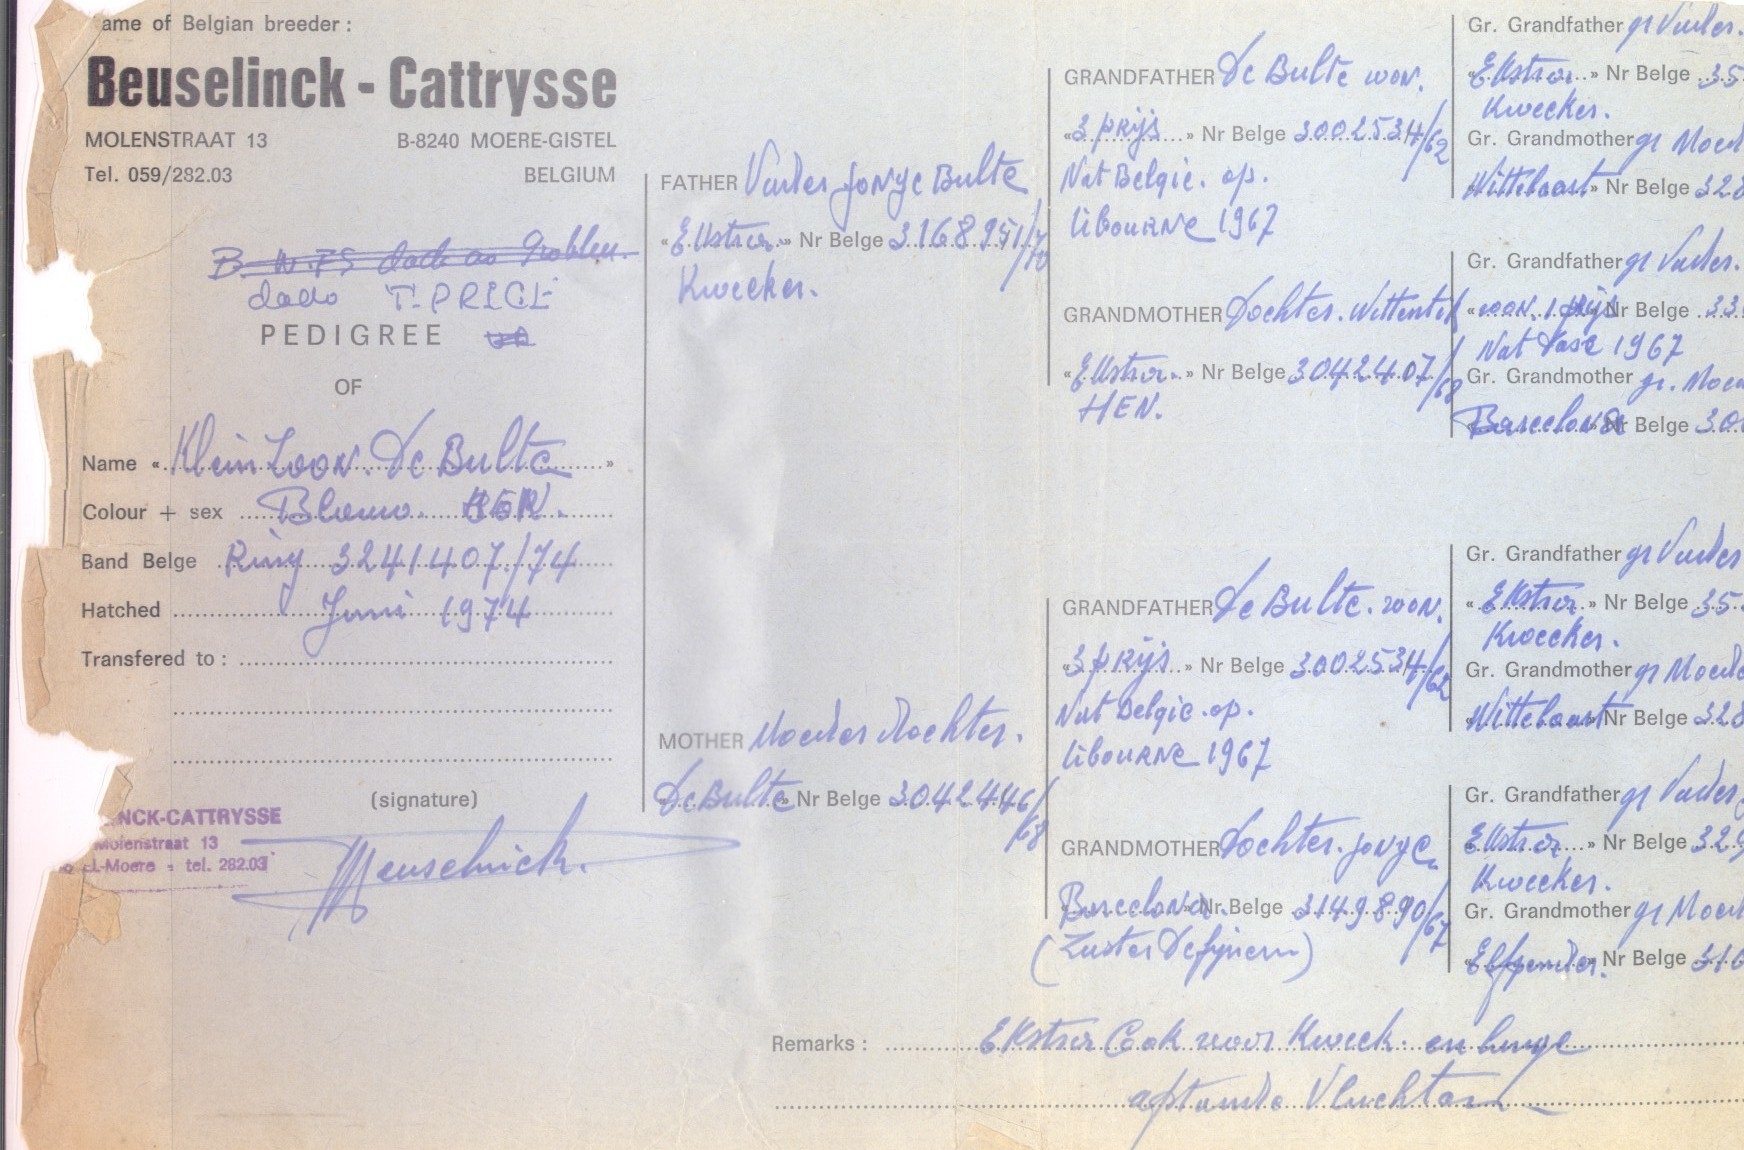 ame of Belgian breeder :
Beuselinck - Cattrysse
MOLENSTRAAT 13 B-8240 MOERE-GISTEL
Tel. 059/282.03 BELGIUM
T. PRICE
PEDIGREE
OF
Name « Klein Zoon. De Bulte »
Colour + sex Blauw. HEN.
Band Belge Ring 3241407/74
Hatched Juni 1974
Transfered to :
(signature)
NCK-CATTRYSSE
Molenstraat 13
L-Moere - tel. 282.03
Beuselinck.
FATHER Vader Jonge Bulte
« Ekstra » Nr Belge 3168951/70
Kweeker.
MOTHER Moeder Dochter.
« De Bulte » Nr Belge 3042446/68
GRANDFATHER De Bulte won.
« 3 prijs » Nr Belge 3002534/62
Nat Belgie. op.
Libourne 1967
GRANDMOTHER Dochter. Wittentik
« Ekstra. » Nr Belge 3042407/68
HEN.
GRANDFATHER De Bulte. won.
« 3 prijs » Nr Belge 3002534/62
Nat Belgie. op.
Libourne 1967
GRANDMOTHER Dochter. jonge
« Barcelona » Nr Belge 3149890/67
(Zuster Defijnen)
Gr. Grandfather gr Vader.
« Ekstra » Nr Belge 35
Kweeker.
Gr. Grandmother gr Moed
« Wittebaart » Nr Belge 328
Gr. Grandfather gr Vader.
« won. 1 prijs » Nr Belge 33
Nat Dax 1967
Gr. Grandmother gr. Moe
« Barcelona » Nr Belge 30
Gr. Grandfather gr Vader
« Ekstra » Nr Belge 35
Kweeker.
Gr. Grandmother gr Moede
« Wittebaart » Nr Belge 328
Gr. Grandfather gr Vader
« Ekstra » Nr Belge 329
Kweeker.
Gr. Grandmother gr Moed
Nr Belge 316
Remarks : Ekstra Ook voor Kweek. en lange
afstande Vluchten